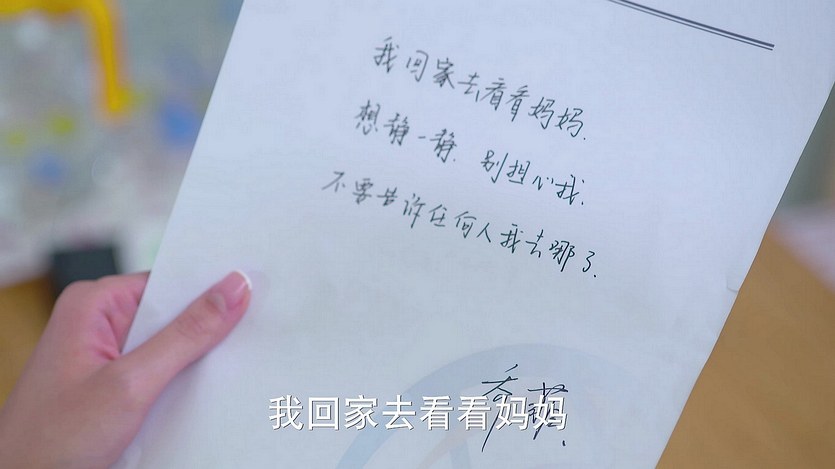 我回家去看看妈妈.
想静一静. 别担心我.
不要告诉任何人我去哪了.
乔菲.
我回家去看看妈妈